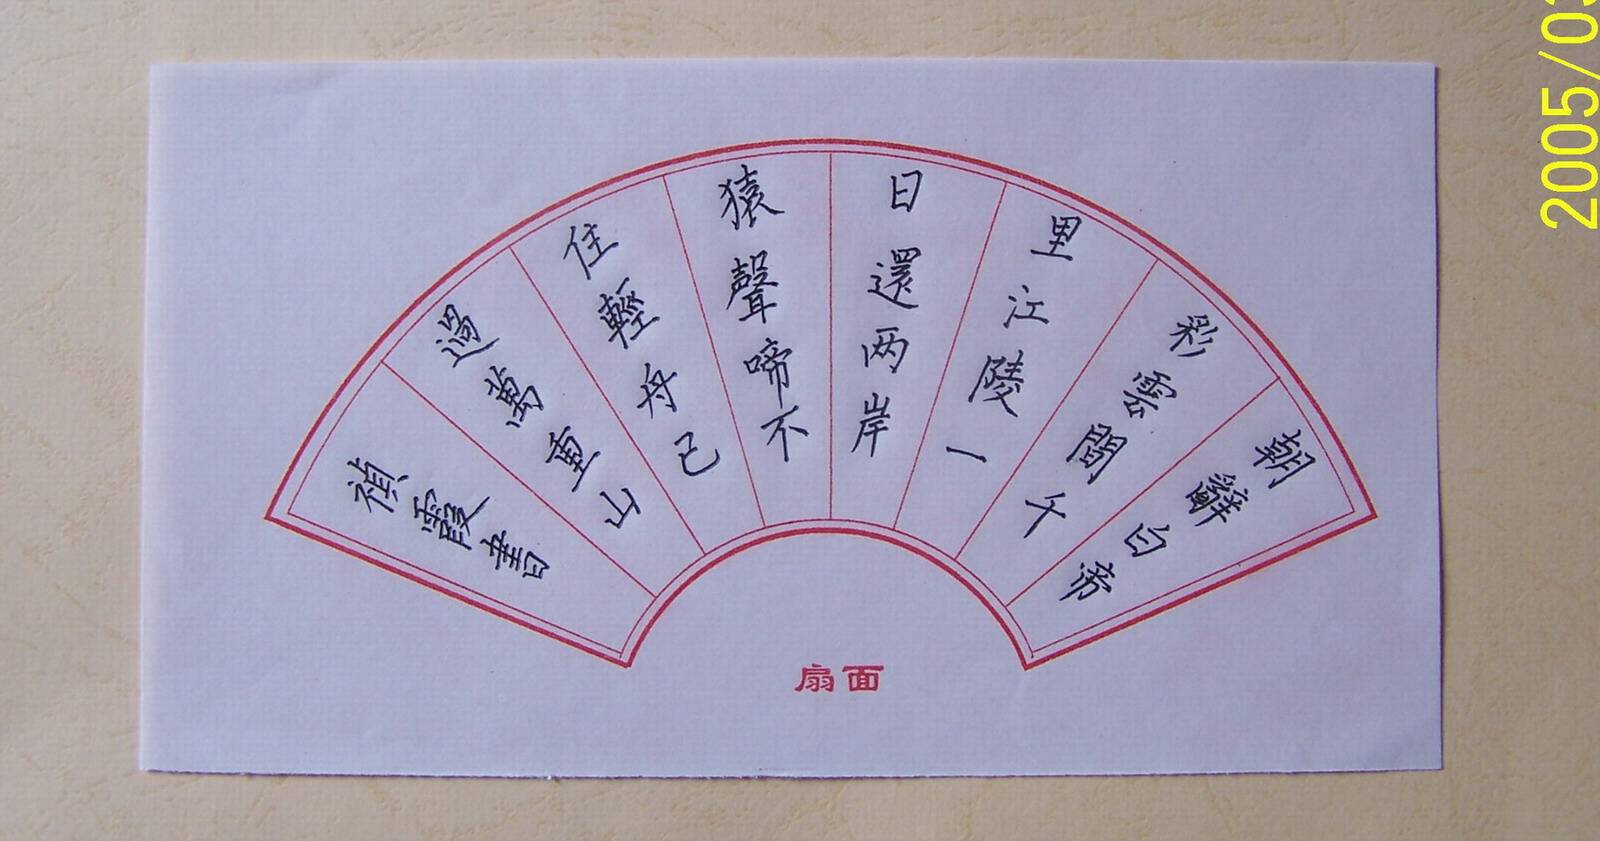 朝辭白帝
彩雲間千
里江陵一
日還两岸
猿聲啼不
住輕舟已
過萬重山
禎霞書
扇面
2005/03